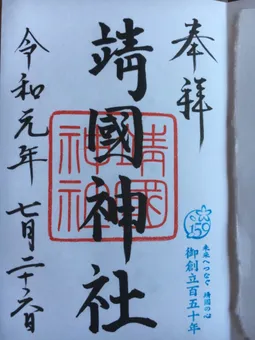 奉拝
150
未来へつなぐ 靖国の心
御創立百五十年
靖國神社
靖國
神社
令和元年 七月二十六日